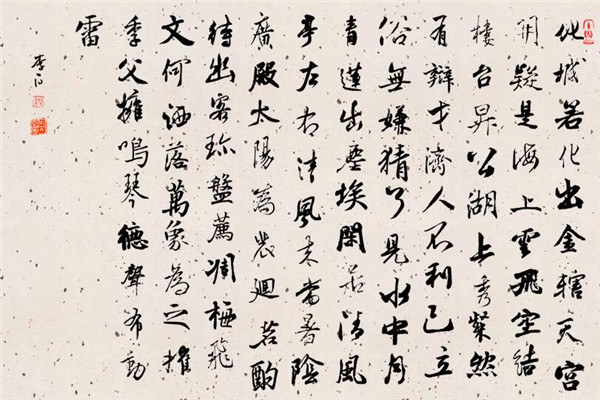 化城若化出金轄天宮
開疑是海上雲飛空結
樓台昇公湖上秀粲然
有辯才濟人不利己立
俗無嫌猜了見水中月
青蓮出塵埃閑居清風
亭左右清風来當暑陰
廣殿太陽為裴迴茗酌
待出客珍盤薦凋梅飛
文何洒落萬象為之摧
季父擁鳴琴德聲布動
雷
李白